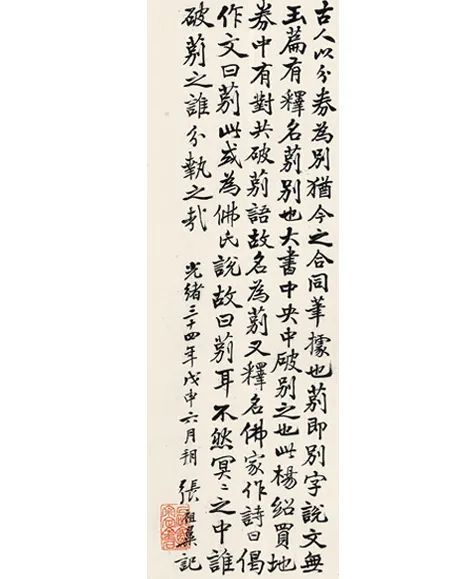 古人以分券為別猶今之合同筆據也莂即別字說文無
玉篇有釋名莂別也大書中央中破別之也此楊紹買地
券中有對共破莂語故名為莂又釋名佛家作詩曰偈
作文曰莂此或為佛氏說故曰莂耳不然冥〻之中誰
破莂之誰分執之哉
光緒三十四年戊申六月朔 張祖翼記